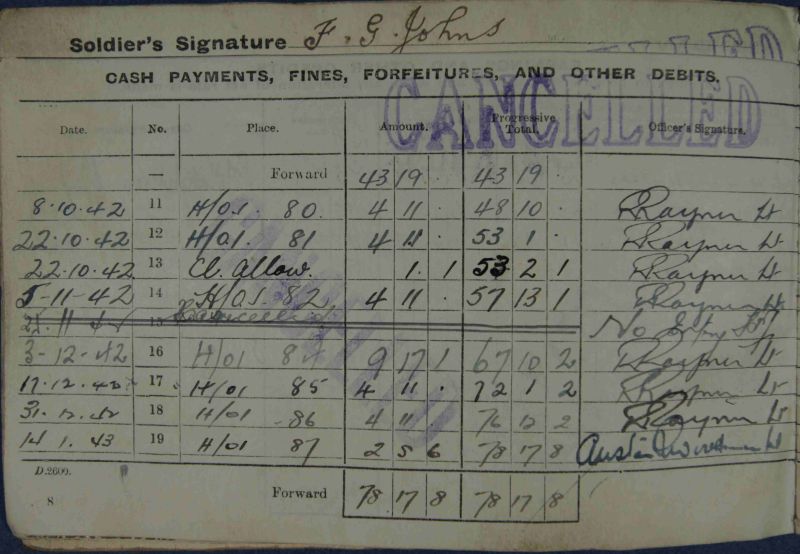 Soldier's Signature F. G. Johns
CASH PAYMENTS, FINES, FORFEITURES, AND OTHER DEBITS.
CANCELLED
Date. No. Place. Amount. Progressive Total. Officer's Signature.
— Forward 43 19 . 43 19 .
8.10.42 11 H/01. 80. 4 11 . 48 10 . Rayner Lt
22.10.42 12 H/01. 81 4 11 . 53 1 . Rayner Lt
22.10.42 13 Cl. Allow. 1 . 1 53 2 1 Rayner Lt
5-11-42 14 H/01-82 4 11 . 57 13 1 Rayner Lt
15 Cancelled No Entry
3-12-42 16 H/01 9 17 1 67 10 2 Rayner Lt
17.12.42 17 H/01 85 4 11 . 72 1 2 Rayner Lt
31.12.42 18 H/01 86 4 11 . 76 12 2 Rayner Lt
14.1.43 19 H/01 87 2 5 6 78 17 8 Lt
D.2600.
8 Forward 78 17 8 78 17 8